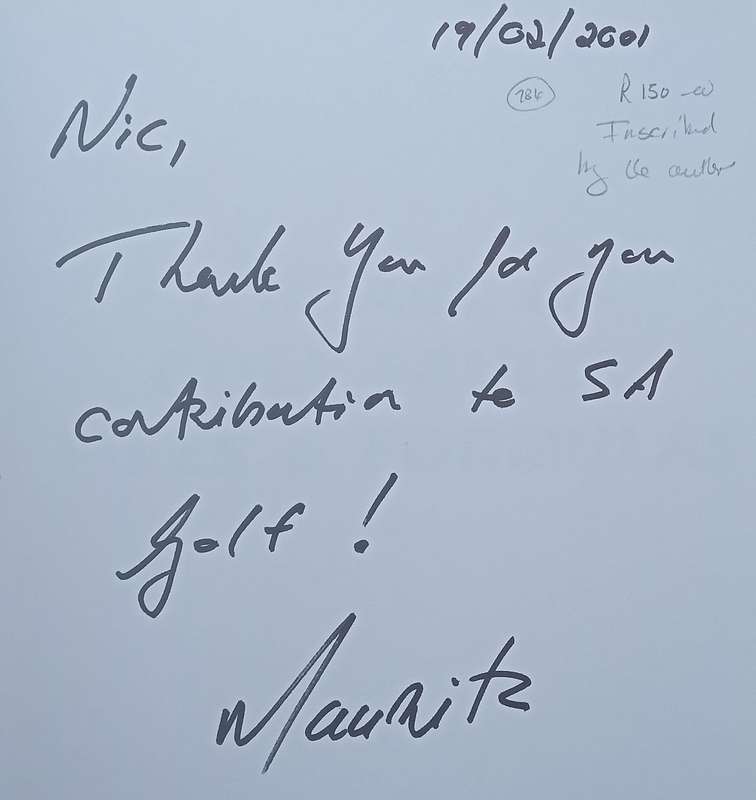 19/02/2001
784
R150-00
Inscribed
by the author
Nic,
Thank You for your
contribution to SA
Golf!
Mauritz